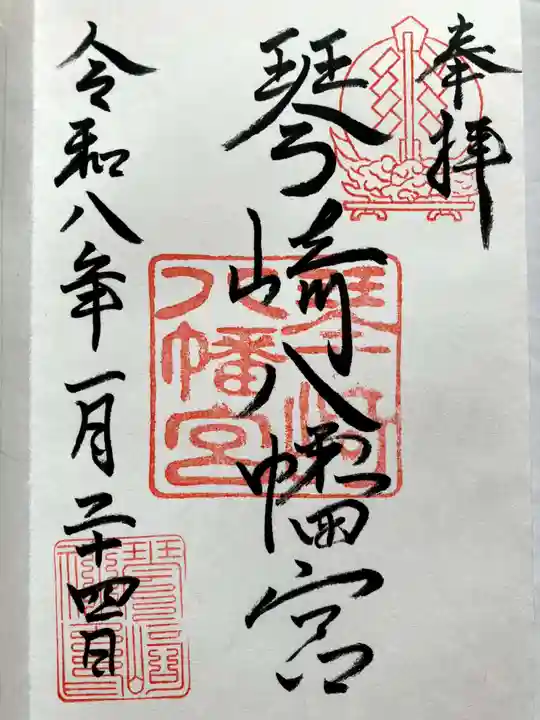 奉拝
琴崎八幡宮
琴崎
八幡宮
令和八年一月二十四日